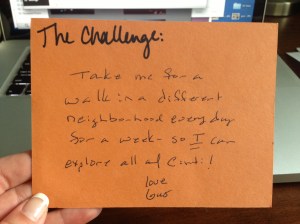 The Challenge:
Take me for a
walk in a different
neighborhood every day
for a week - so I can
explore all of Cinti!
love
Gus